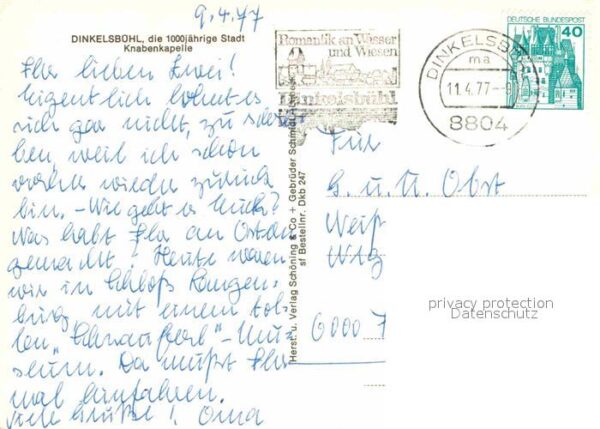 9.4.77
DINKELSBÜHL, die 1000jährige Stadt
Knabenkapelle
Ihr lieben Zwei!
Eigentlich lohnt es
sich gar nicht, zu schrei
ben, weil ich schon
vorher wieder zurück
bin. - Wie geht es Euch?
Was habt Ihr an Ostern
gemacht? Heute waren
wir in Schloß Langen-
burg mit einem tol-
len "Schnauferl"-Mu-
seum. Da müßt Ihr
mal hinfahren.
Viele Grüße! Oma
Herst. u. Verlag Schöning & Co + Gebrüder Schmidt
sf Bestellnr. Dkb 247
Romantik an Wasser
und Wiesen
Dinkelsbühl
DINKELSBÜHL
ma
11.4.77-9
8804
DEUTSCHE BUNDESPOST
40
Für
G. u. U. Obst
6000 7
privacy protection
Datenschutz